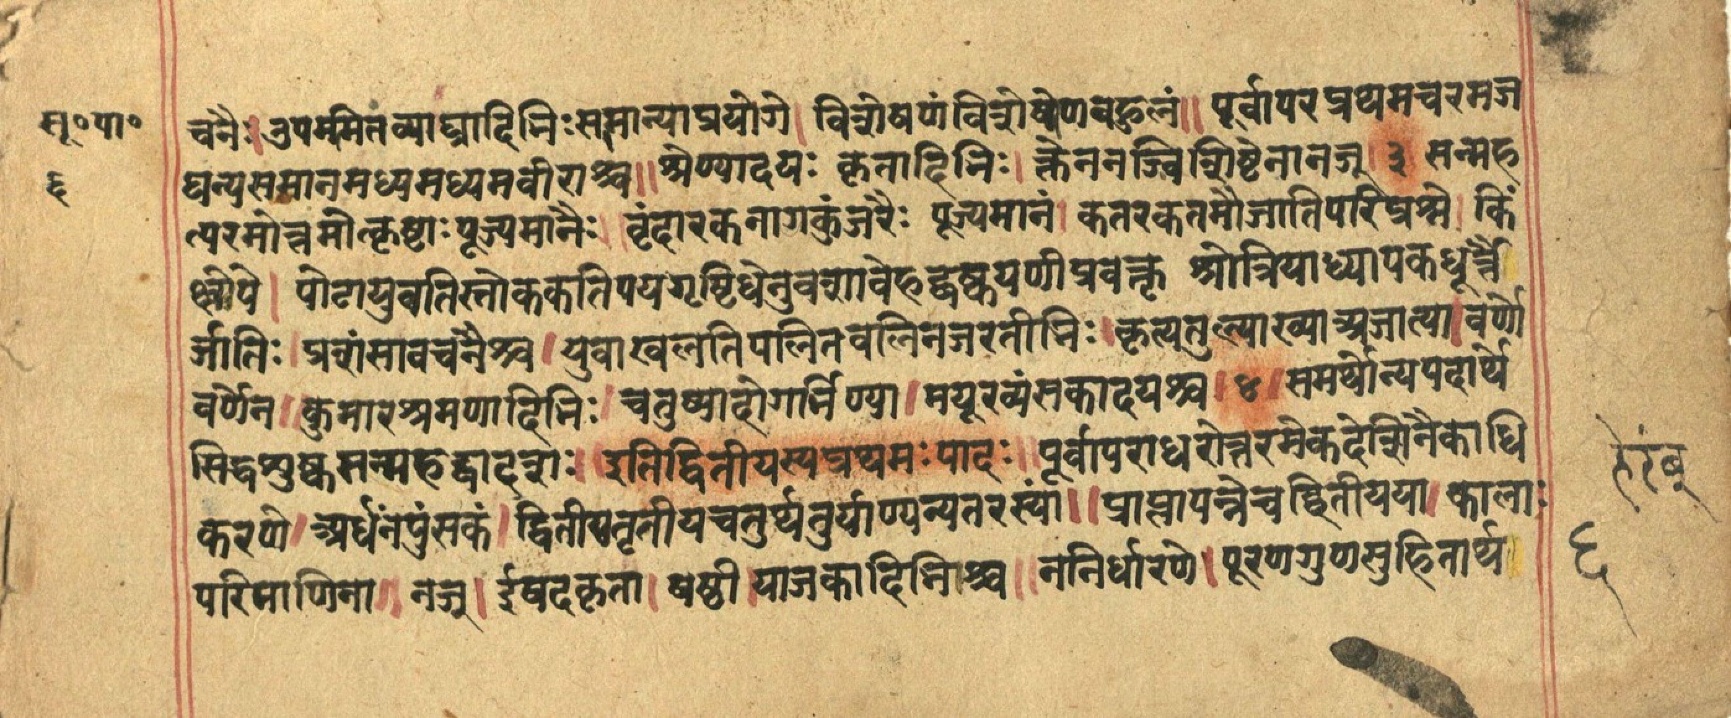 सू॰पा॰
६
चनैः। उपममितं व्याघ्रादिभिः समान्याप्रयोगे। विशेषणं विशेष्येण बहुलं॥ पूर्वापर प्रथमचरमज
घन्यसमानमध्यमध्यमवीराश्च॥ श्रेण्यादयः कृतादिभिः। क्तेननञ्विशिष्टेनानञ्। ३ सन्मह
त्परमोत्तमोत्कृष्टाः पूज्यमानैः। वृंदारकनागकुंजरैः पूज्यमानं। कतरकतमौजातिपरिप्रश्ने। किं
क्षेपे। पोटायुवतिस्तोककतिपयगृष्टिधेनुवशावेहद्बष्कयणीप्रवक्तृ श्रोत्रियाध्यापकधूर्त्तै
र्जातिः। प्रशंसावचनैश्च। युवाखलतिपलितवलिनजरतीभिः। कृत्यतुल्याख्याअजात्या। वर्णो
वर्णेन। कुमारश्रमणादिभिः। चतुष्पादोगर्भिण्या। मयूरव्यंसकादयश्च। ४। समर्थोन्यपदार्थे
सिद्धशुष्कसन्महद्वादशः। इतिद्वितीयस्यप्रथमः पादः॥ पूर्वापराधरोत्तरमेकदेशिनैकाधि
करणे। अर्धंनपुंसकं। द्वितीयतृतीयचतुर्थतुर्याण्यन्यतरस्यां॥ प्राप्तापन्नेचद्वितीयया। कालाः
परिमाणिना॥ नञ्। ईषदकृता। षष्ठी। याजकादिभिश्च॥ ननिर्धारणे। पूरणगुणसुहितार्थ
६